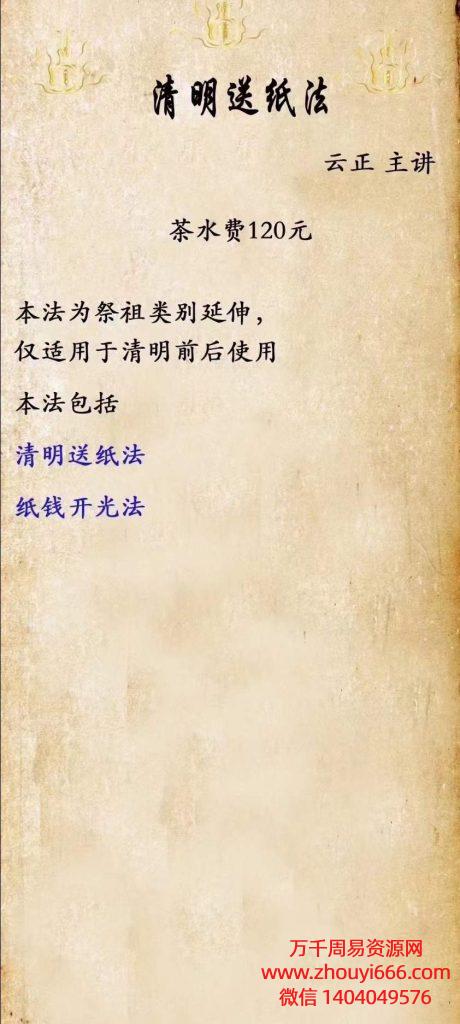 清明送纸法
云正 主讲
茶水费120元
本法为祭祖类别延伸，
仅适用于清明前后使用
本法包括
清明送纸法
纸钱开光法
万千周易资源网
www.zhouyi666.com
微信 1404049576